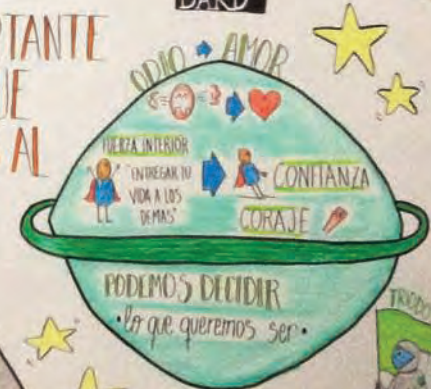 BARD
TANTE
UE
AL
ODIO → AMOR
FUERZA INTERIOR
"ENTREGAR TU
VIDA A LOS
DEMAS"
CONFIANZA
CORAJE
PODEMOS DECIDIR
•lo que queremos ser•
TRIODO